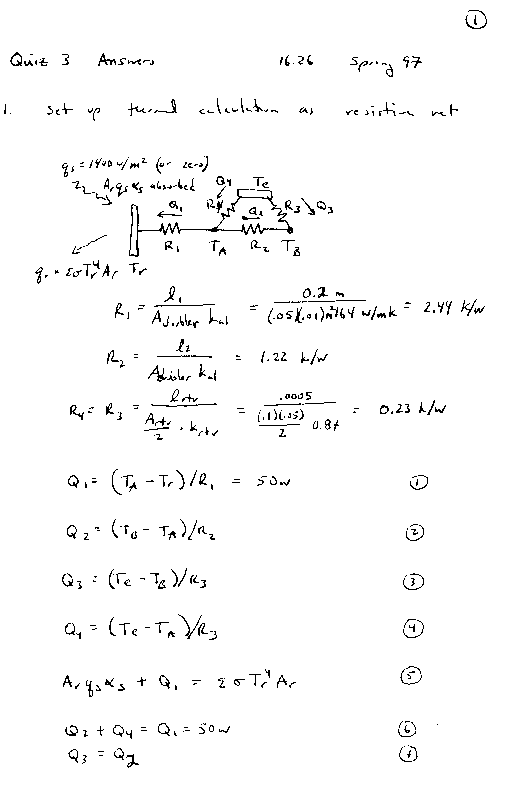 ①
Quiz 3 Answers 16.26 Spring 97
1. Set up thermal calculation as resistive net
qs = 1400 w/m² (or zero)
Ar qs αs absorbed
Q4 Te
Q1 R4 Q2 R3 Q3
R1 TA R2 TB
qr = εσTr⁴Ar Tr
R1 = l1 / (A doubler kal) = 0.2 m / ((.05)(.01)m² 164 w/mk) = 2.44 k/w
R2 = l2 / (A doubler kal) = 1.22 k/w
R4 = R3 = lrtv / (Artv/2 · krtv) = .0005 / ((.1)(.05)/2 0.87) = 0.23 k/w
Q1 = (TA - Tr)/R1 = 50w ①
Q2 = (TB - TA)/R2 ②
Q3 = (Te - TB)/R3 ③
Q4 = (Te - TA)/R3 ④
Ar qs αs + Q1 = εσTr⁴Ar ⑤
Q2 + Q4 = Q1 = 50w ⑥
Q3 = Q2 ⑦